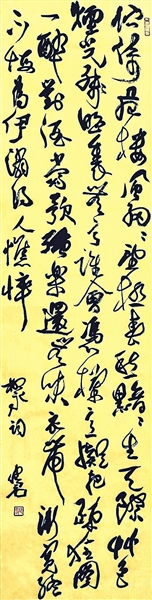 佇倚危樓風細〻望極春愁黯〻生天際艸色
煙光殘照裏無言誰會憑欄意擬把疏狂圖
一醉對酒當歌強樂還無味衣帶漸寬終
不悔為伊消得人憔悴
柳永詞